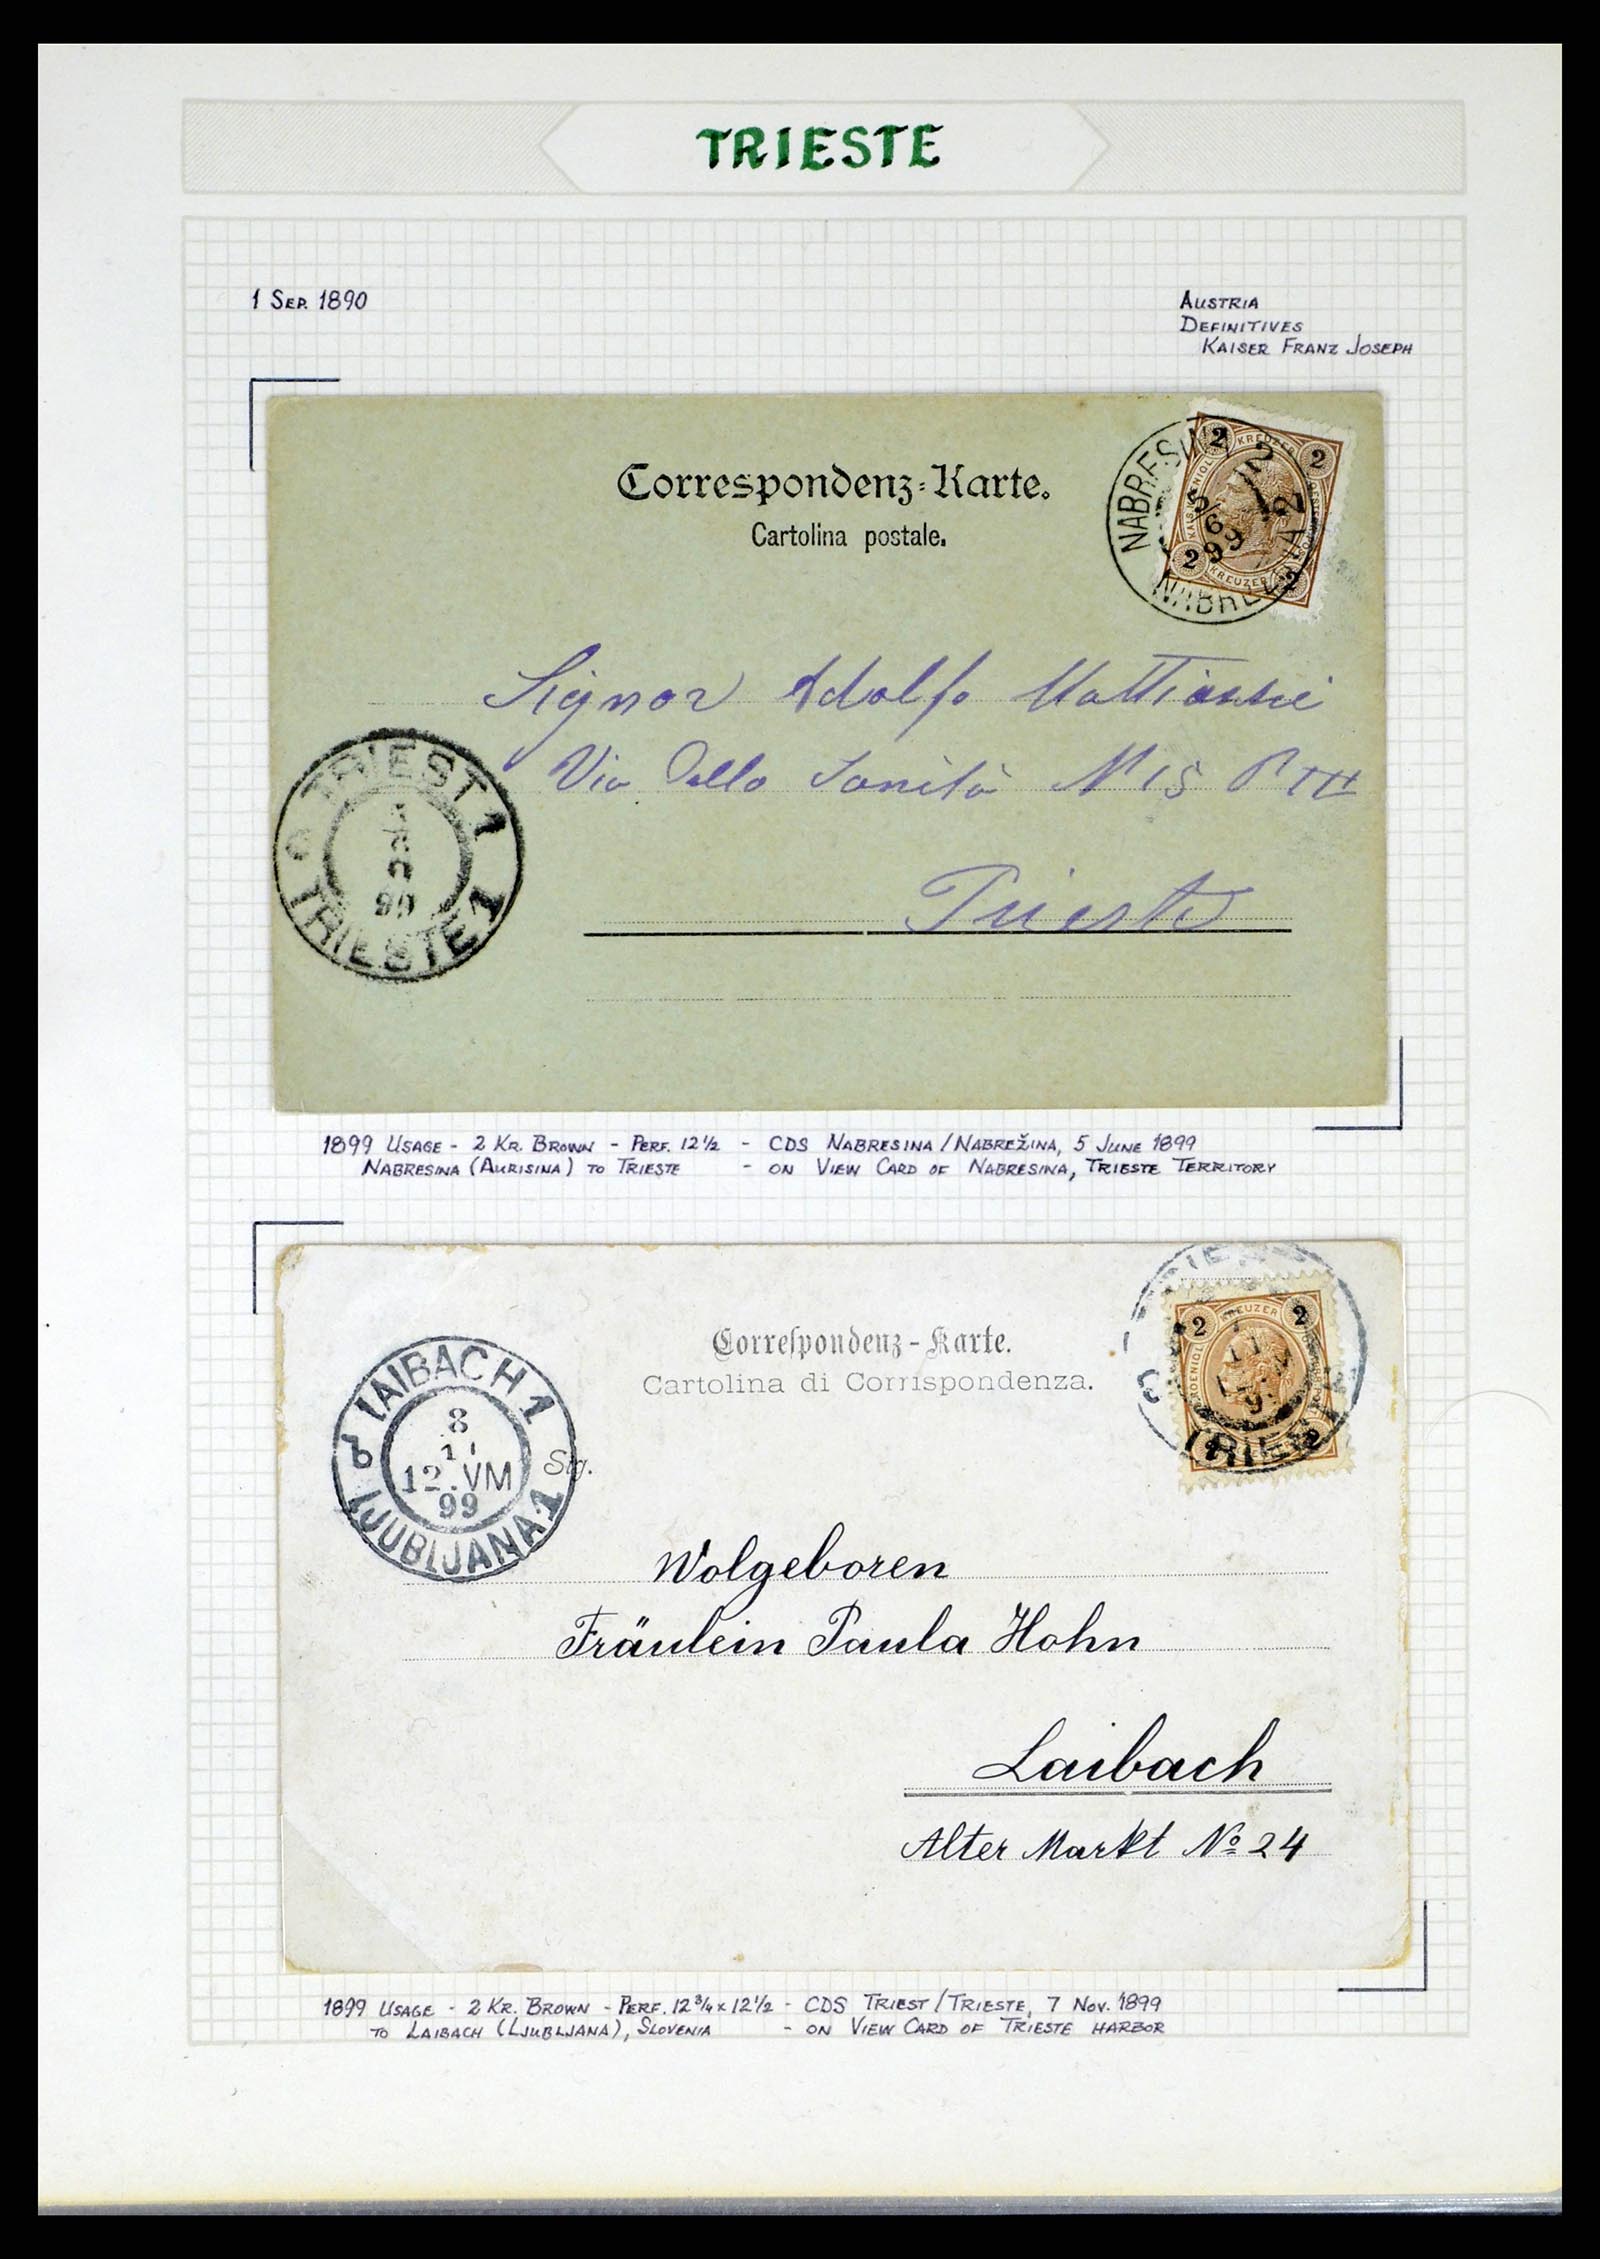 TRIESTE
1 SEP. 1890
AUSTRIA
DEFINITIVES
KAISER FRANZ JOSEPH
Correspondenz-Karte.
Cartolina postale.
NABRESINA
5/6 99
2 KREUZER 2
2 KREUZER 2
Signor Adolfo
Via Della Sanità N 15
Trieste
TRIEST 1
99
TRIESTE 1
1899 USAGE - 2 KR. BROWN - PERF. 12 1/2 - CDS NABRESINA/NABREŽINA, 5 JUNE 1899
NABRESINA (AURISINA) TO TRIESTE - ON VIEW CARD OF NABRESINA, TRIESTE TERRITORY
Correspondenz-Karte.
Cartolina di Corrispondenza.
2 KREUZER 2
LAIBACH 1
8
11
12.VM
99
LJUBLJANA 1
Sig.
Wolgeboren
Fräulein Paula Hohn
Laibach
Alter Markt No 24
1899 USAGE - 2 KR. BROWN - PERF. 12 3/4 x 12 1/2 - CDS TRIEST/TRIESTE, 7 NOV. 1899
TO LAIBACH (LJUBLJANA), SLOVENIA - ON VIEW CARD OF TRIESTE HARBOR